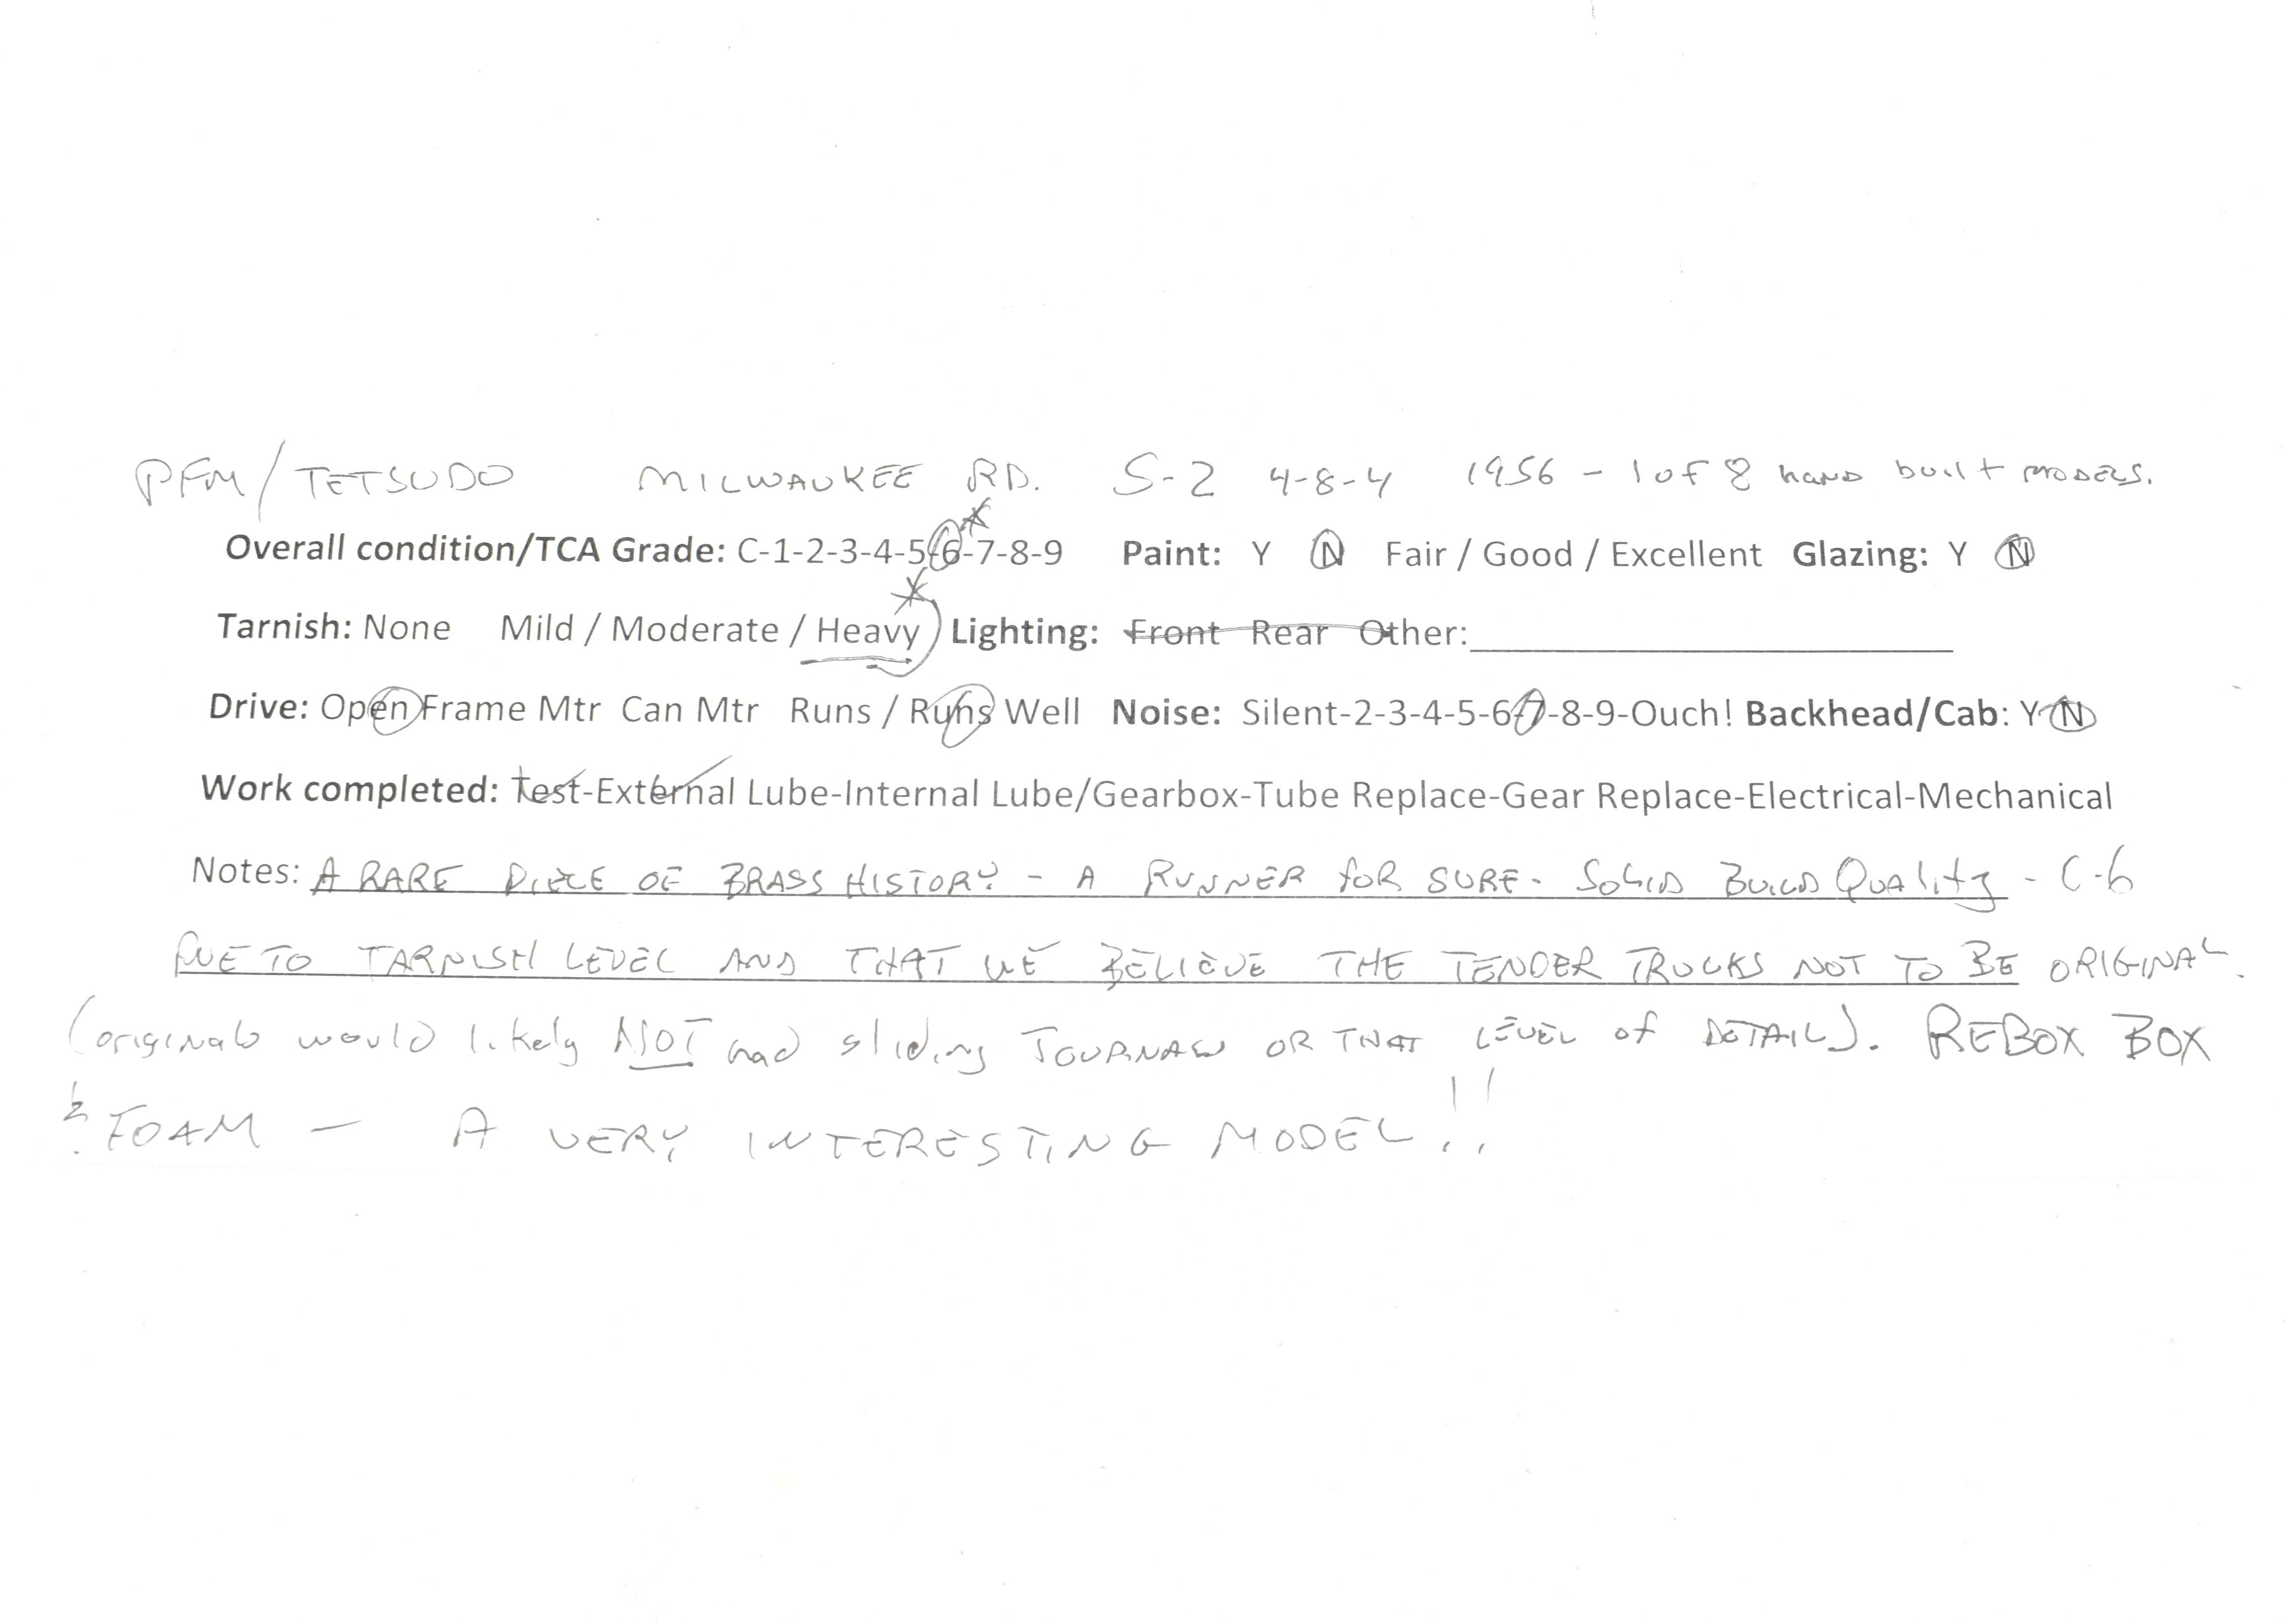 PFM/TETSUDO MILWAUKEE RD. S-2 4-8-4 1956 - 1 of 8 hand built models.
Overall condition/TCA Grade: C-1-2-3-4-5-6-7-8-9 Paint: Y N Fair / Good / Excellent Glazing: Y N
Tarnish: None Mild / Moderate / Heavy Lighting: Front Rear Other:
Drive: Open Frame Mtr Can Mtr Runs / Runs Well Noise: Silent-2-3-4-5-6-7-8-9-Ouch! Backhead/Cab: Y N
Work completed: Test-External Lube-Internal Lube/Gearbox-Tube Replace-Gear Replace-Electrical-Mechanical
Notes: A RARE PIECE OF BRASS HISTORY - A RUNNER FOR SURE. SOLID BUILD QUALITY - C-6
DUE TO TARNISH LEVEL AND THAT WE BELIEVE THE TENDER TRUCKS NOT TO BE ORIGINAL.
(originals would likely NOT had sliding JOURNALS OR THAT LEVEL of DETAIL). REBOX BOX
& FOAM - A VERY INTERESTING MODEL!!